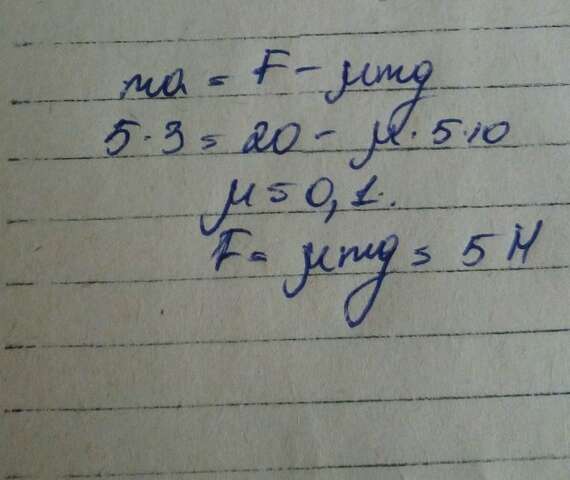 ma = F - μmg
5·3 = 20 - μ·5·10
μ = 0,1.
F = μmg = 5 Н